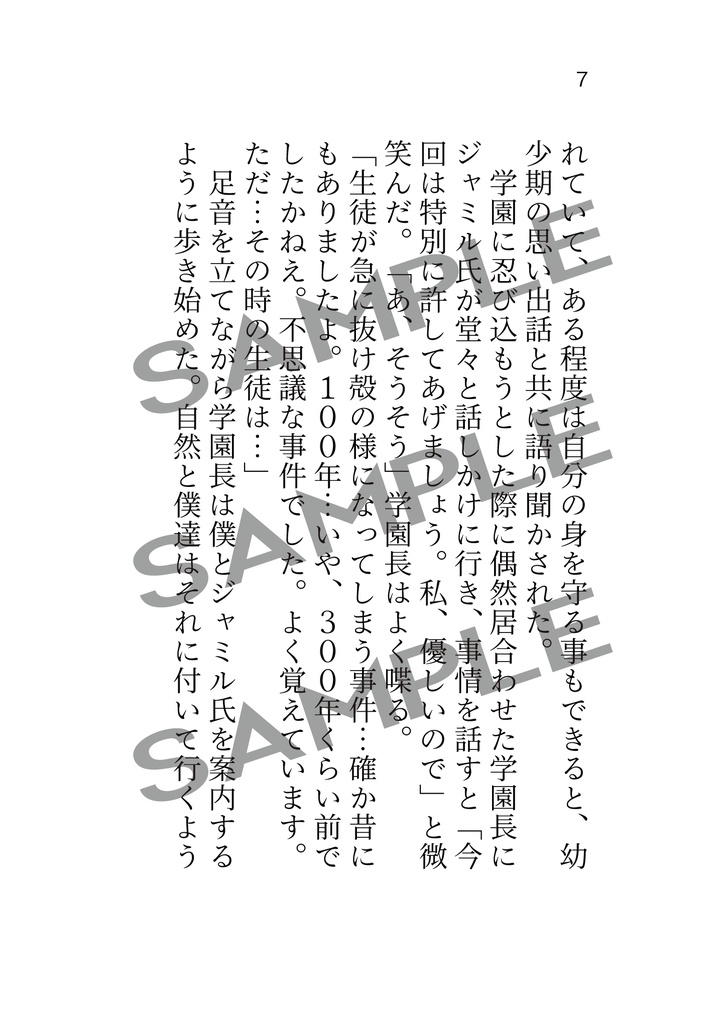 7
れていて、ある程度は自分の身を守る事もできると、幼
少期の思い出話と共に語り聞かされた。
　学園に忍び込もうとした際に偶然居合わせた学園長に
ジャミル氏が堂々と話しかけに行き、事情を話すと「今
回は特別に許してあげましょう。私、優しいので」と微
笑んだ。「あ、そうそう」学園長はよく喋る。
「生徒が急に抜け殻の様になってしまう事件…確か昔に
もありましたよ。１００年…いや、３００年くらい前で
したかねえ。不思議な事件でした。よく覚えています。
ただ…その時の生徒は…」
　足音を立てながら学園長は僕とジャミル氏を案内する
ように歩き始めた。自然と僕達はそれに付いて行くよう
SAMPLE
SAMPLE
SAMPLE